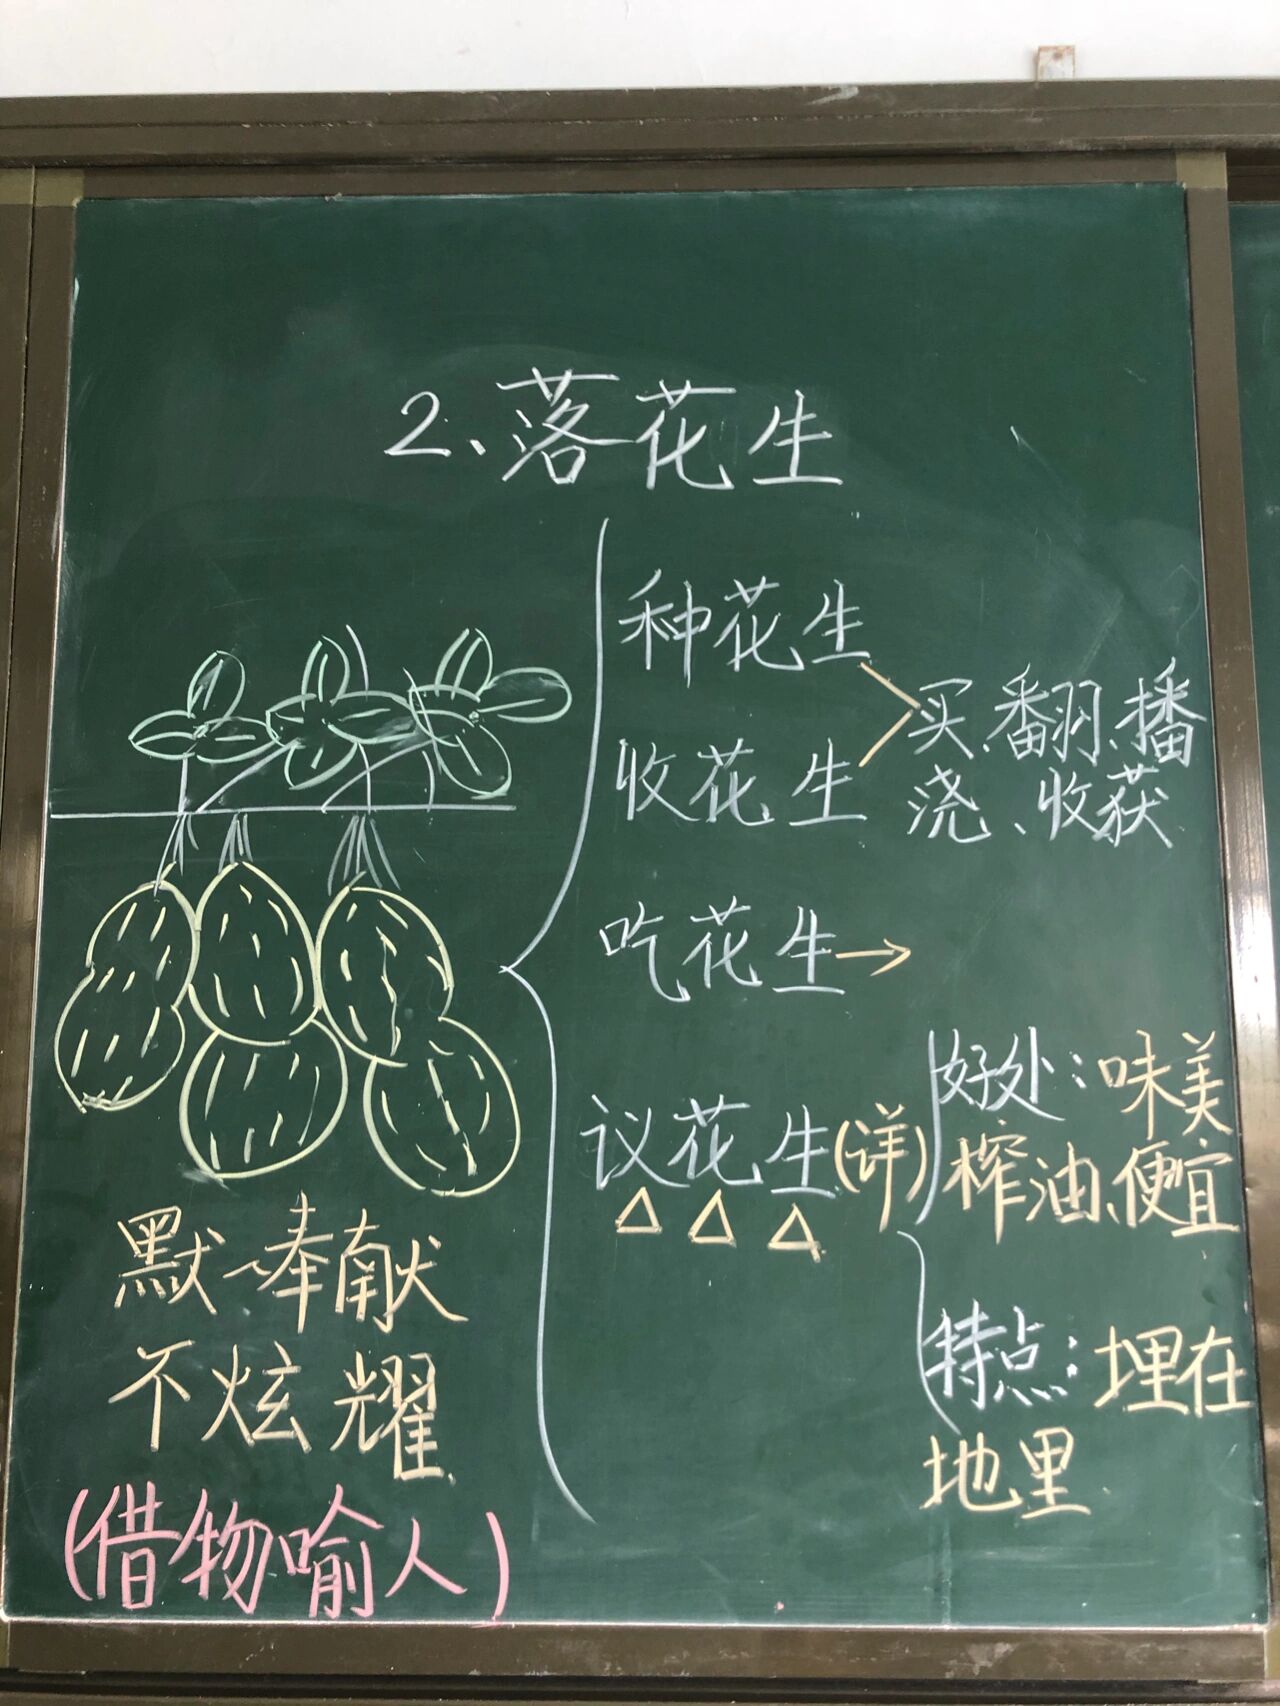 2、落花生
种花生
收花生
买、翻、播
浇、收获
吃花生→
议花生(详)
△ △ △
好处:味美
榨油、便宜
特点:埋在
地里
默~奉献
不炫耀
(借物喻人)